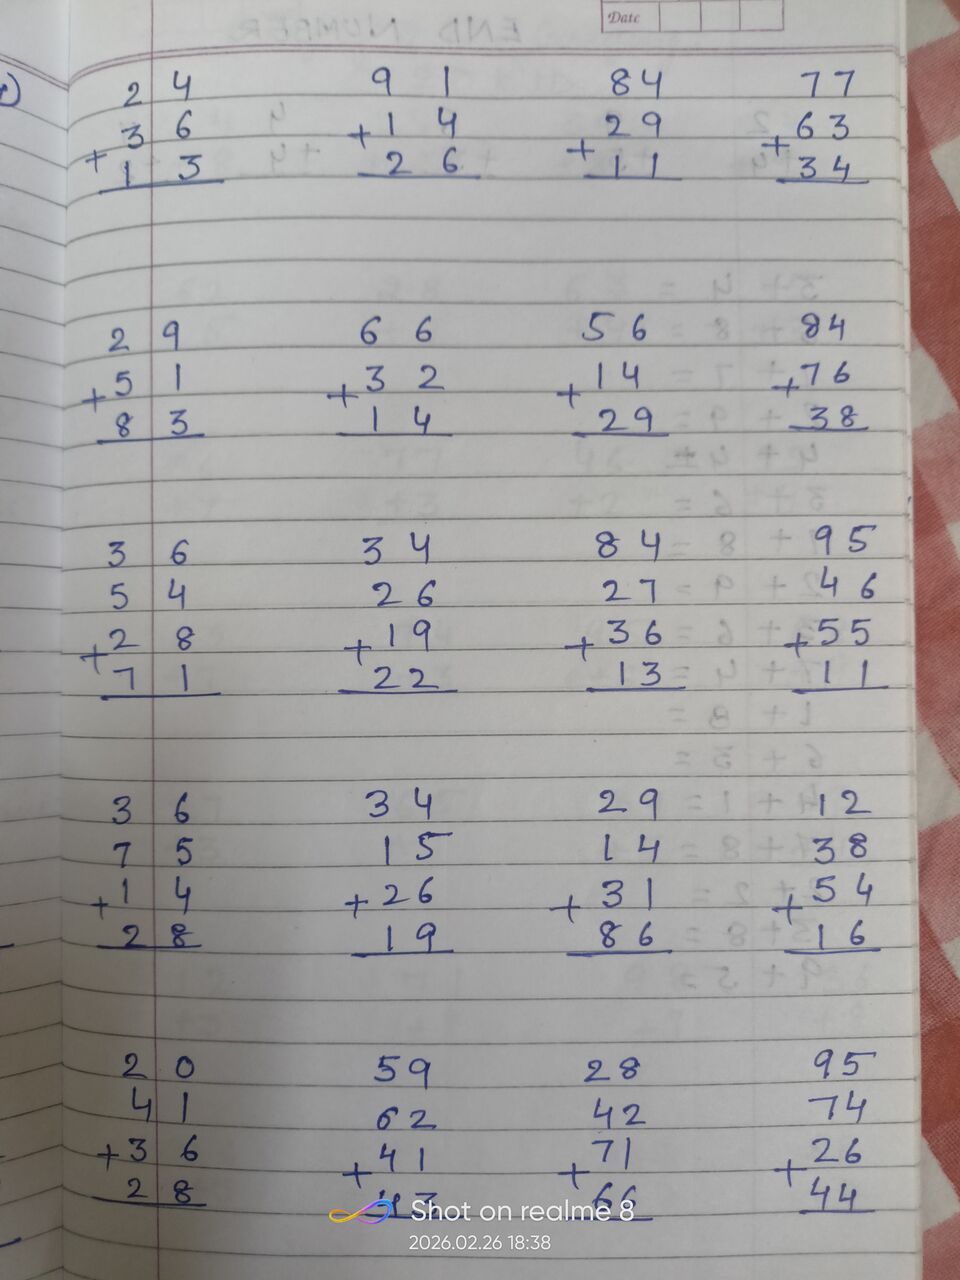 Date
24 91 84 77
36 +14 29 +63
+13 26 +11 34
29 66 56 84
+51 +32 +14 +76
83 14 29 38
36 34 84 95
54 26 27 46
+28 +19 +36 +55
71 22 13 11
36 34 29 12
75 15 14 38
+14 +26 +31 +54
28 19 86 16
20 59 28 95
41 62 42 74
+36 +41 +71 +26
28 43 66 44
Shot on realme 8
2026.02.26 18:38